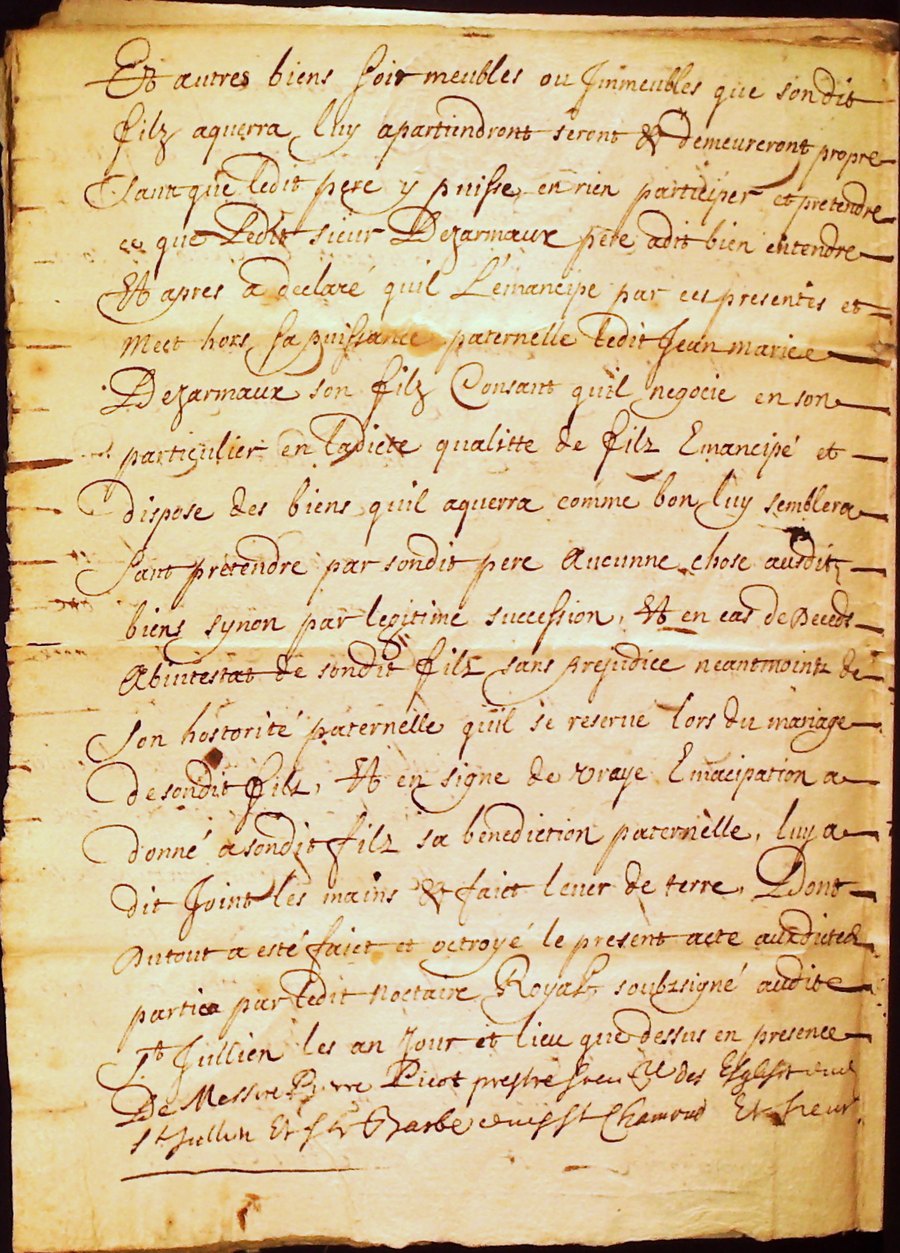 Et autres biens soit meubles ou Jmmeubles que sondit
filz aquerra luy apartiendront seront & demeureront propre
sant que ledit pere y puisse en rien participer et pretendre
ce que Ledit sieur Dezarmaux pere a dit bien entendre
Et apres a declaré quil L'émancipe par ces presentes et
mect hors sa puissance paternelle ledit Jean marice
Dezarmaux son filz Consant quil negocie en son
particulier en ladicte qualitte de filz Emancipé et
dispose des biens quil aquerra comme bon luy semblera
sant pretendre par sondit pere aucunne chose ausditz
biens synon par legitime succession, Et en cas de Deceds
Abintestat de sondit filz sans prejudice neantmointz de
son hostorité paternelle quil se reserve lors du mariage
de sondit filz, Et en signe de vraye Emacipation a
donné a sondit filz sa benediction paternelle, luy a
dit Joint les mains & faict lever de terre, Dont
Du tout a esté faict et octroyé le present acte auxdictes
partiea par ledit noctaire Royal soubzsigné audit
St Jullien les an Jour et lieu que dessus en presence
De Messire Pierre Picot prestre des Esglises
St Jullien Et Ste Barbe St Chamond Et sieur